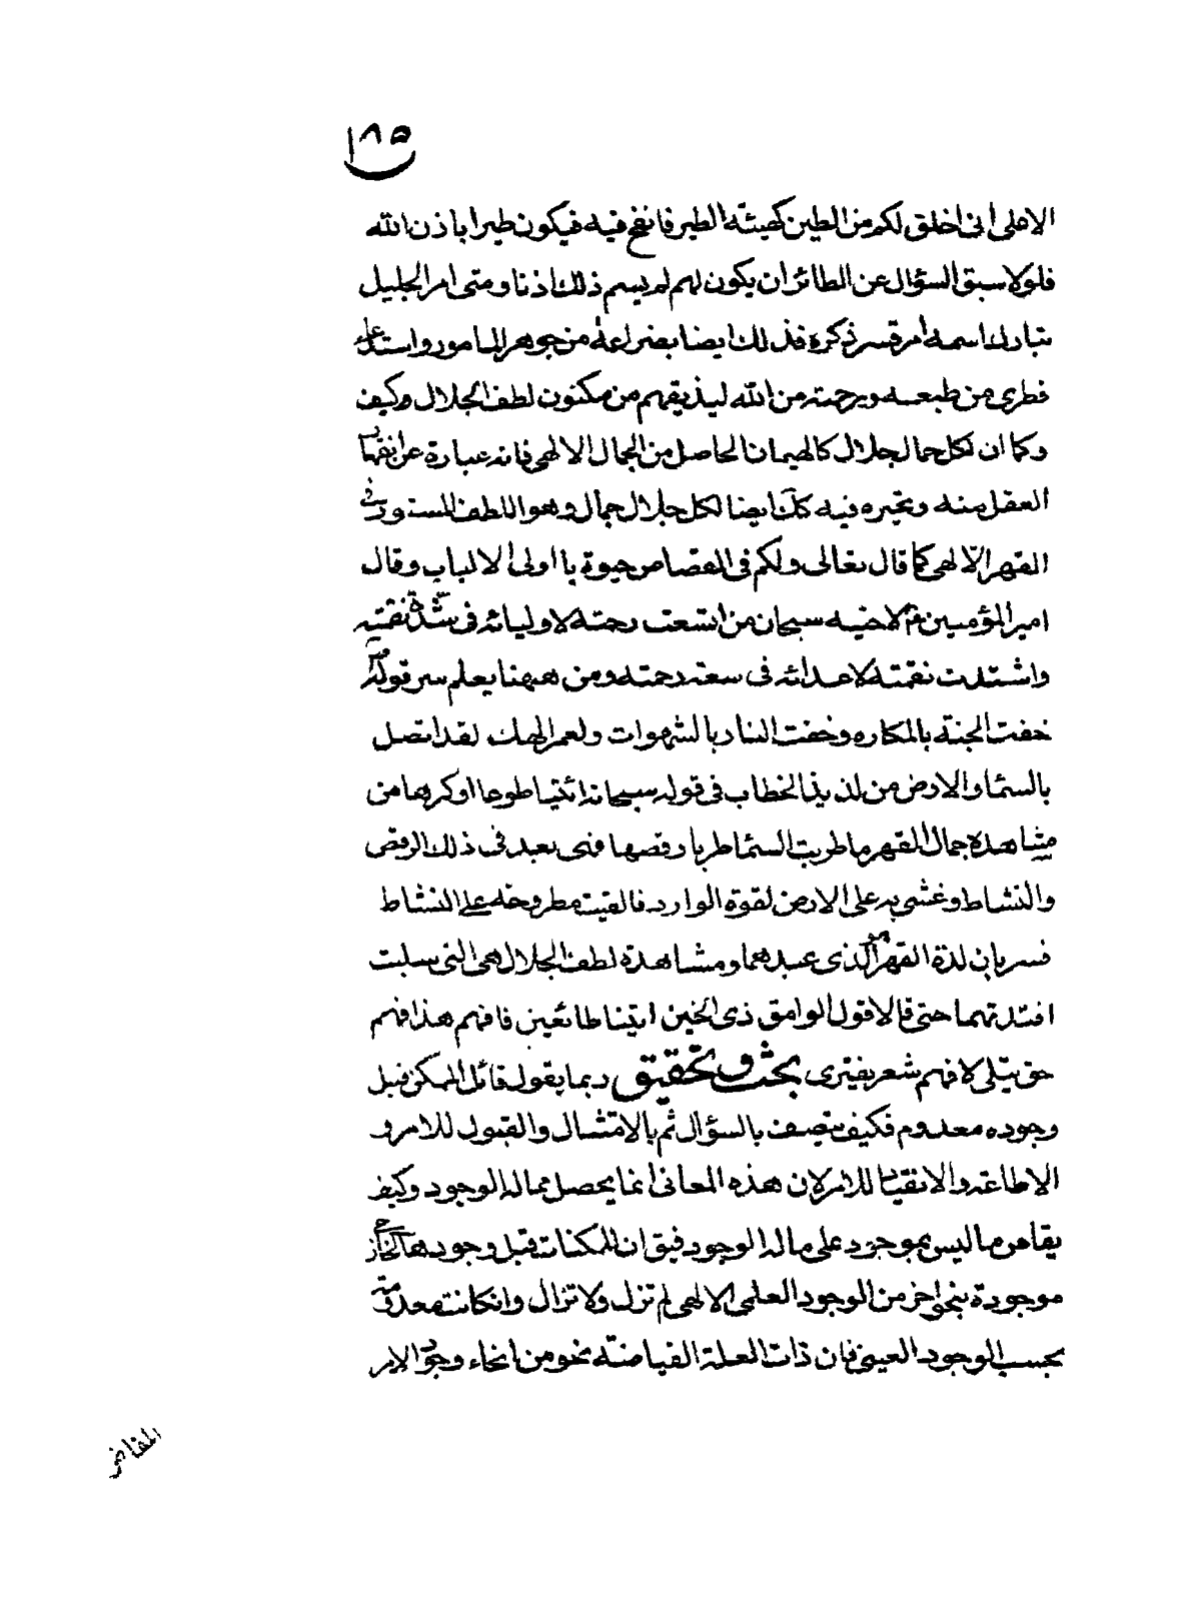 ١٨٥
الاعلى انى اخلق لكم من الطين كهيئة الطير فانفخ فيه فيكون طيرا باذن الله
فلولا سبق السؤال عن الطائر ان يكون لهم لم يسم ذلك اذنا ومتى امر الجليل
تبارك اسمه امر قسر ذكره فذلك ايضا بضراعة من جوهر المامور واستدعاء
فطرى من طبعه وبرحمة من الله ليذيقهم من مكنون لطف الجلال وكيف
وكما ان لكل جمال جلال كالهيمان الحاصل من الجمال الالهى فانه عبارة عن انقهار
العقل منه وتحيره فيه كك ايضا لكل جلال جمال وهو اللطف المستور فى
القهر الالهى كما قال تعالى ولكم فى القصاص حيوة يا اولى الالباب وقال
امير المؤمنين ع لاخيه سبحان من اتسعت رحمته لاوليائه فى شدة نقمته
واشتدت نقمته لاعدائه فى سعة رحمته ومن ههنا يعلم سر قوله ص
حفت الجنة بالمكاره وحفت النار بالشهوات ولعمر الهك لقد اتصل
بالسماء والارض من لذيذ الخطاب فى قوله سبحانه ائتيا طوعا او كرها من
مشاهدة جمال القهر ما طربت السماء طربا رقصها فهى بعد فى ذلك الرقص
والنشاط وغشى به على الارض لقوة الوارد فالقيت مطروحة على النشاط
فسريان لذة القهر الذى عبدهما ومشاهدة لطف الجلال هى التى سلبت
افئدتهما حتى قالا قول الوامق ذى الحنين اتينا طائعين فافهم هذا فهم
حق يتلى لا فهم شعر يفترى بحث وتحقيق ربما يقول قائل الممكن قبل
وجوده معدوم فكيف يتصف بالسؤال ثم بالامتثال والقبول للامر و
الاطاعة والانقياد للامر لان هذه المعانى انما يحصل مما له الوجود وكيف
يقاس ما ليس بموجود على ما له الوجود فيق ان للمكنات قبل وجودها الخارجى
موجودة بنحو اخر من الوجود العلمى الالهى لم تزل ولا تزال وانكانت معدومة
بحسب الوجود العينى فان ذات العلة الفياضة نحو من انحاء وجود الامر
المفاض